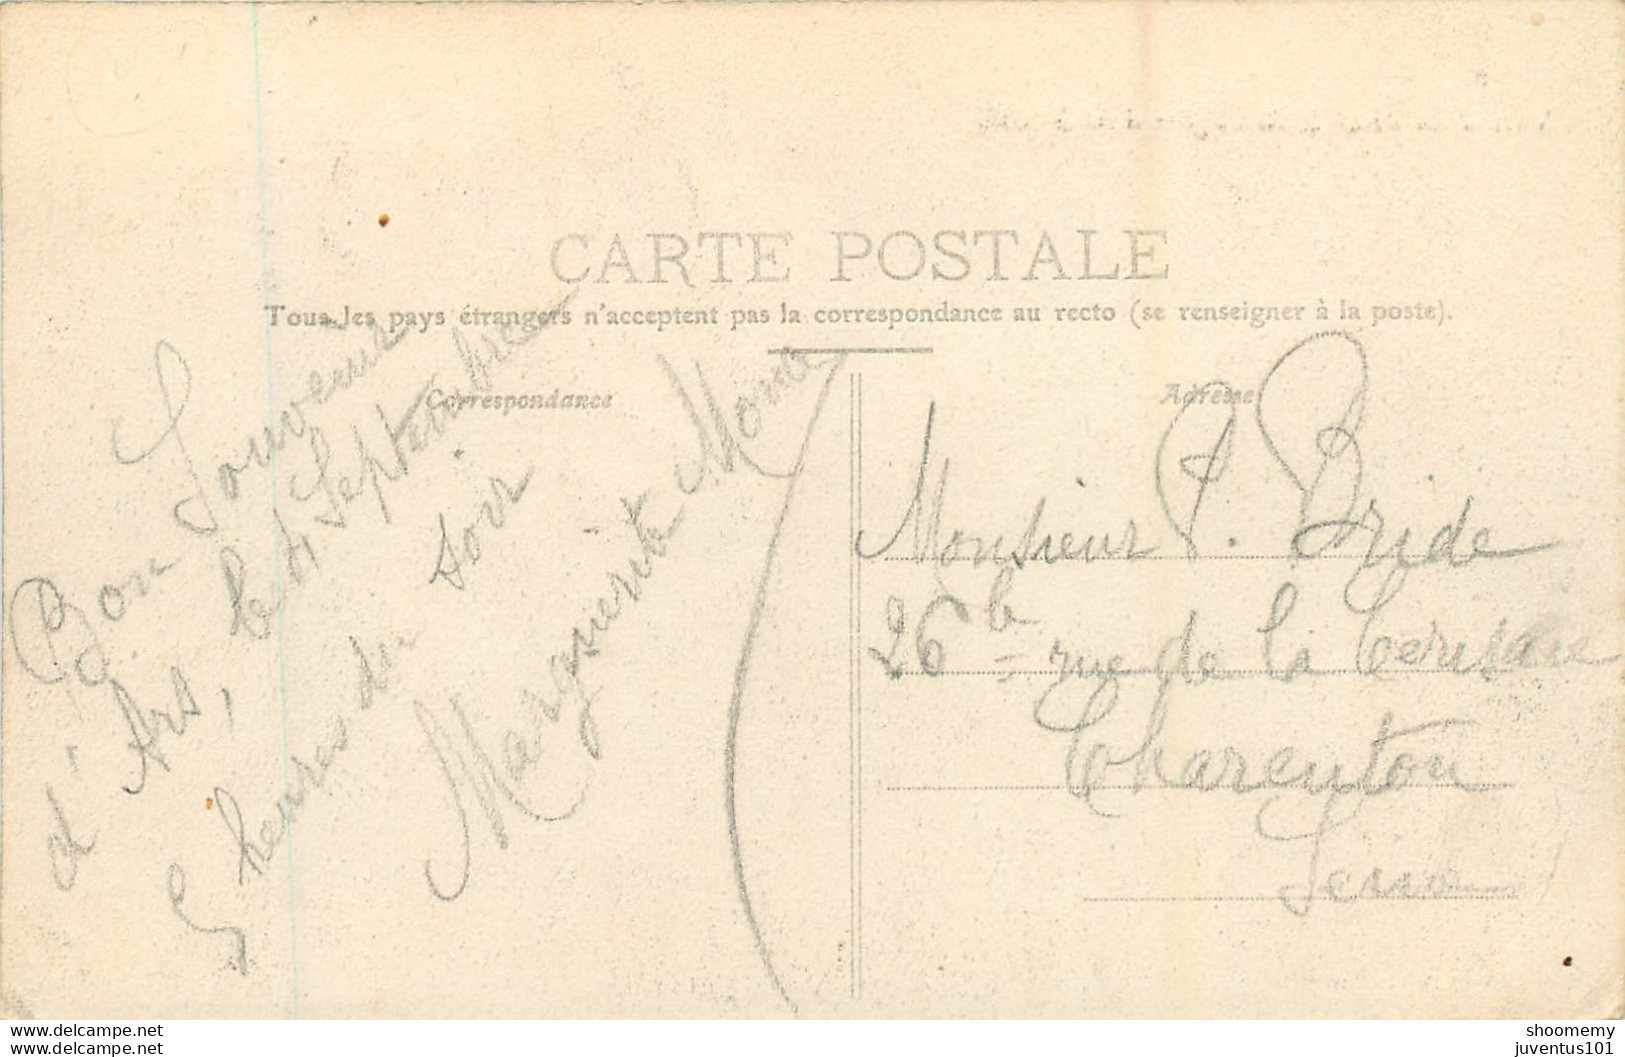 CARTE POSTALE
Tous les pays étrangers n'acceptent pas la correspondance au recto (se renseigner à la poste).
Correspondance
Adresse
Bon Souvenir
d'Ars, le 4 Septembre
5 heures du soir
Marguerite
Monsieur P. Bride
26 b = rue de la Cerisaie
Charenton
Seine
www.delcampe.net
www.delcampe.net
shoomemy
juventus101